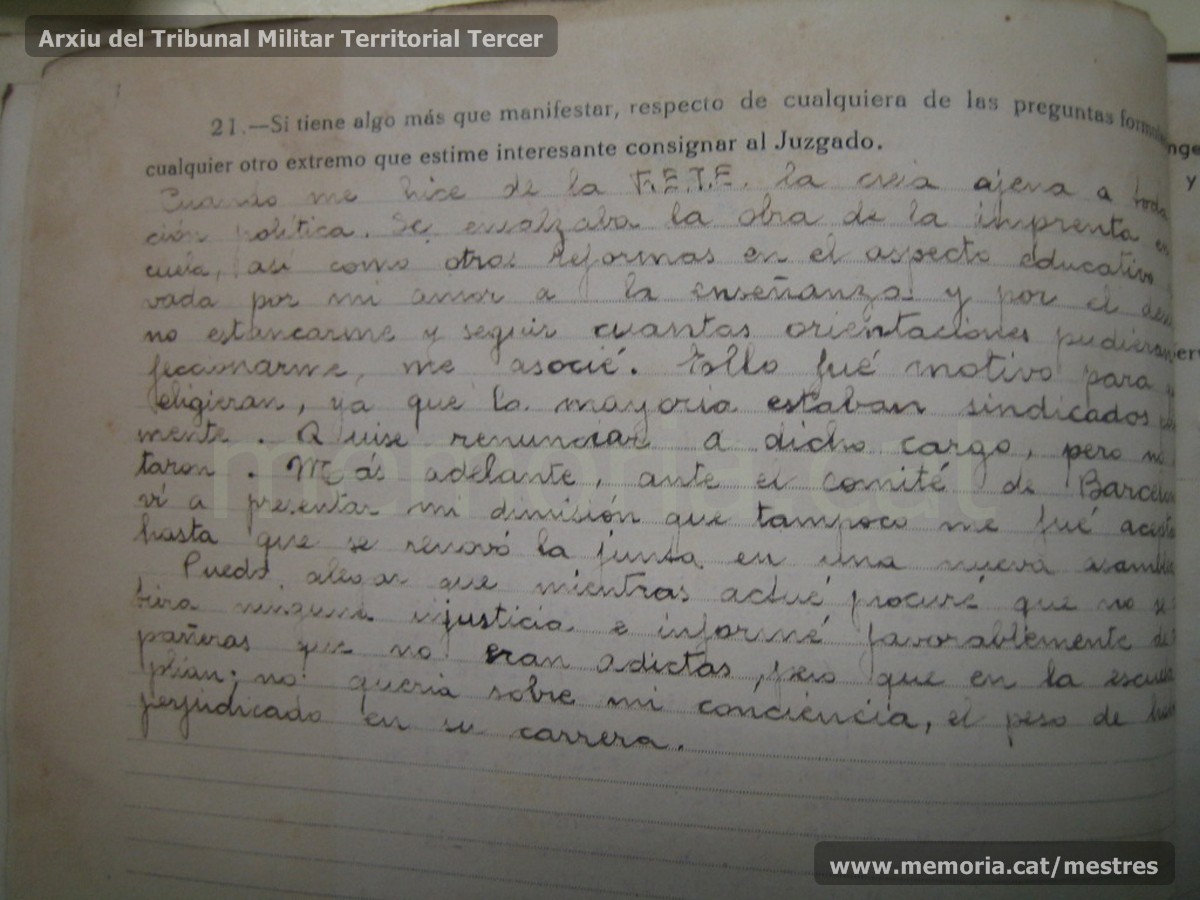 Arxiu del Tribunal Militar Territorial Tercer
21.—Si tiene algo más que manifestar, respecto de cualquiera de las preguntas formula
cualquier otro extremo que estime interesante consignar al Juzgado.
nge
y
Cuando me hice de la F.E.T.E. la creia ajena a toda
ción política. Se ensalzaba la obra de la imprenta en
cuela, así como otras reformas en el aspecto educativo
vada por mi amor a la enseñanza y por el dese
no estancarme y seguir cuantas orientaciones pudieran
ier
feccionarme, me asocié. Ello fué motivo para
eligieran, ya que la mayoria estaban sindicados
mente. Quise renunciar a dicho cargo, pero no
taron. Más adelante, ante el comité de Barcelon
ví a presentar mi dimisión que tampoco me fué acepta
hasta que se renovó la junta en una nueva asamble
Puedo alegar que mientras actué procuré que no se
tiera ninguna injusticia e informé favorablemente de
pañeras que no eran adictas, pero que en la escuela
plían; no queria sobre mi conciencia, el peso de
perjudicado en su carrera.
memoria.cat
www.memoria.cat/mestres